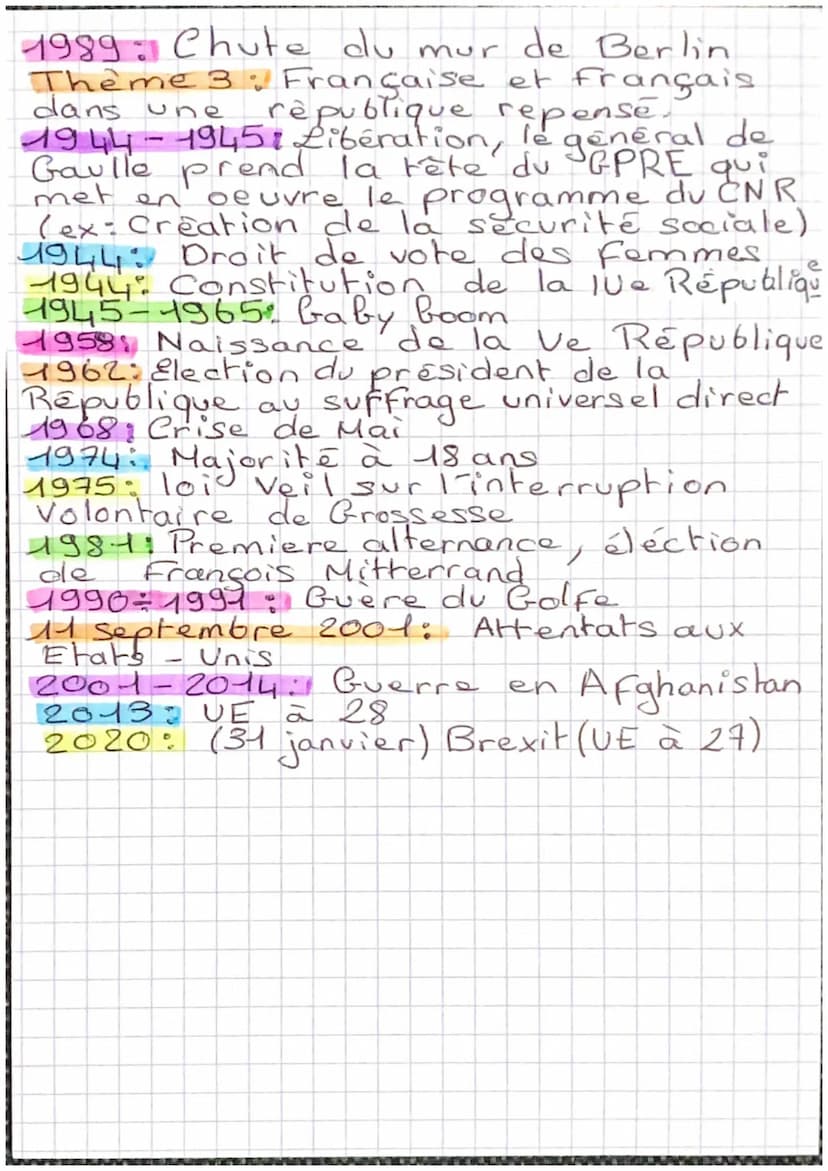 1989: Chute du mur de Berlin
Thème 3: Française et français
dans une république repensé.
1944-1945: Libération, le général de
Gaulle prend la tête du GPRE qui
met en oeuvre le programme du CNR
(ex: Création de la sécurité sociale)
1944: Droit de vote des femmes
1944: Constitution de la IVe République
1945-1965: Baby Boom
1958: Naissance de la Ve République
1962: Election du président de la
République au suffrage universel direct
1968: Crise de Mai
1974: Majorité à 18 ans
1975: loi Veil sur l'interruption
Volontaire de Grossesse
1981: Premiere alternance, éléction
de François Mitterrand
1990-1991: Guère du Golfe
11 septembre 2001: Attentats aux
Etats-Unis
2001-2014: Guerre en Afghanistan
2013: UE à 28
2020: (31 janvier) Brexit (UE à 27)